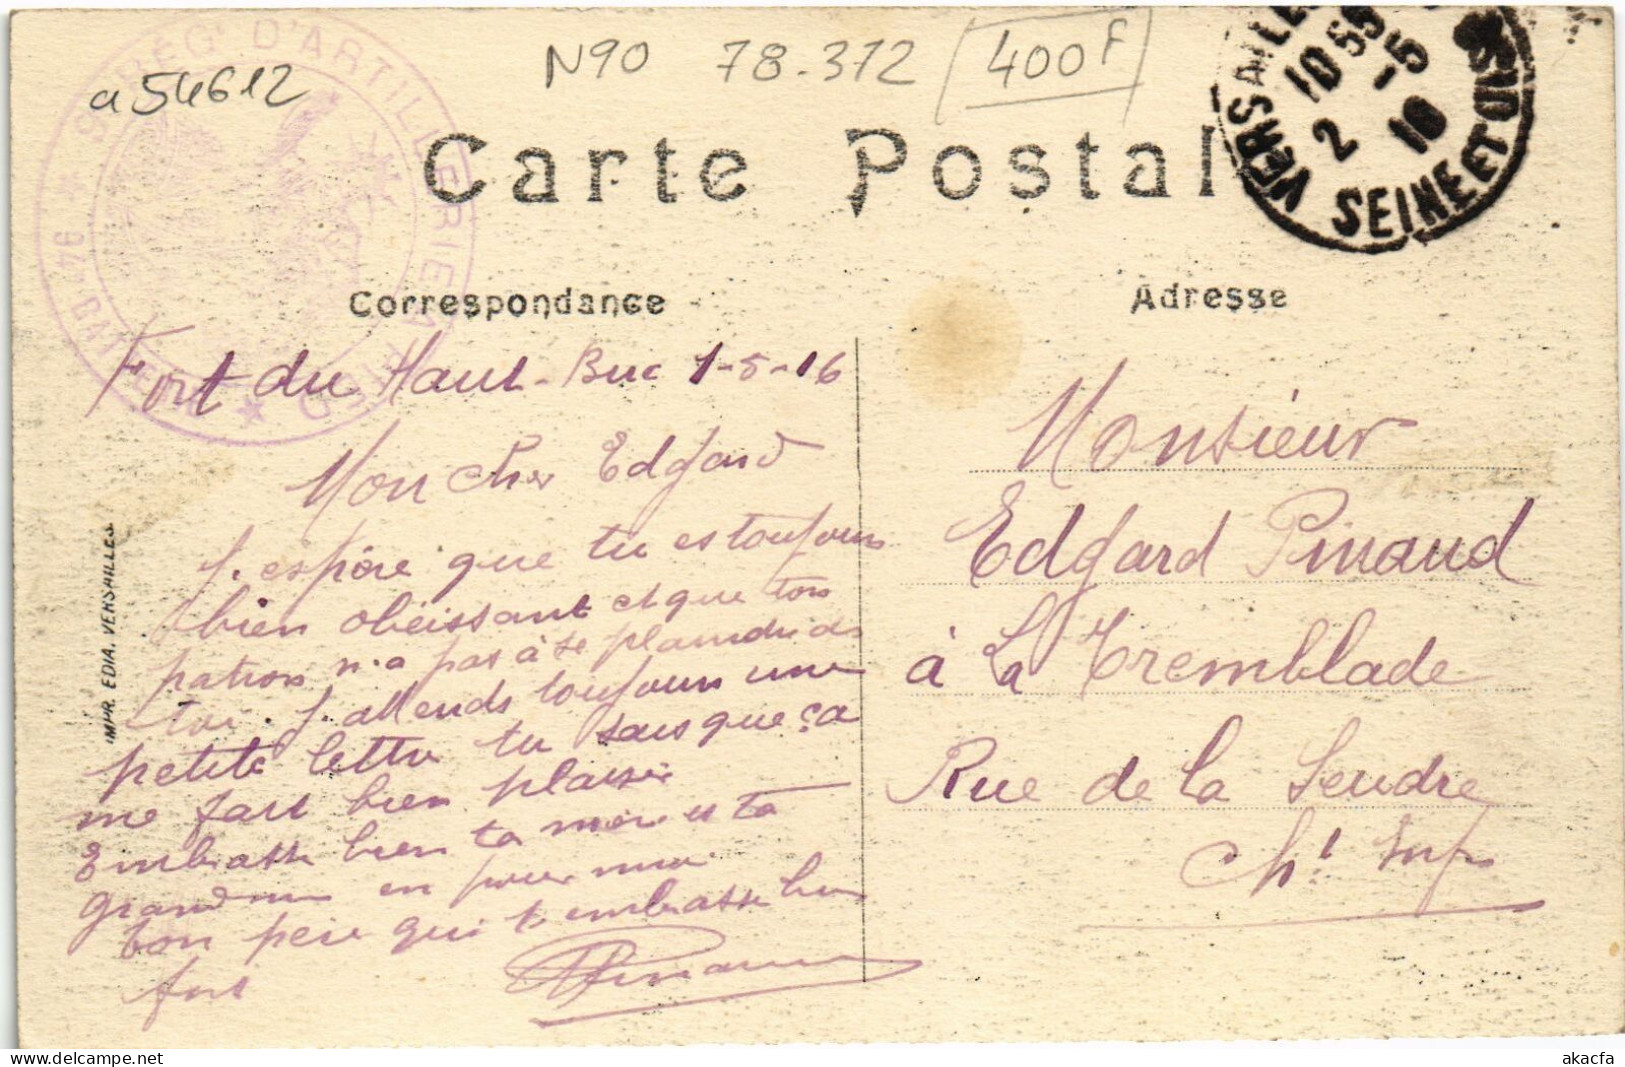 a 54612
N90 78-372 400F
Carte Postale
VERSAILLES
10 55
2 -5
16
SEINE ET OISE
RÉGT D'ARTILLERIE A PIED
94e BATTERIE
Correspondance
Adresse
Fort du Haut-Buc 1-5-16
Mon cher Edgard
J'espère que tu es toujours
bien obéissant et que ton
patron n'a pas à se plaindre de
toi. J'attends toujours une
petite lettre tu sais que ça
me fait bien plaisir
Embrasse bien ta mère et ta
grand mère pour moi
ton père qui t'embrasse bien
fort
Pinaud
Monsieur
Edgard Pinaud
à La Tremblade
Rue de la Seudre
Cht Infre
IMPR. EDIA. VERSAILLES
akacfa